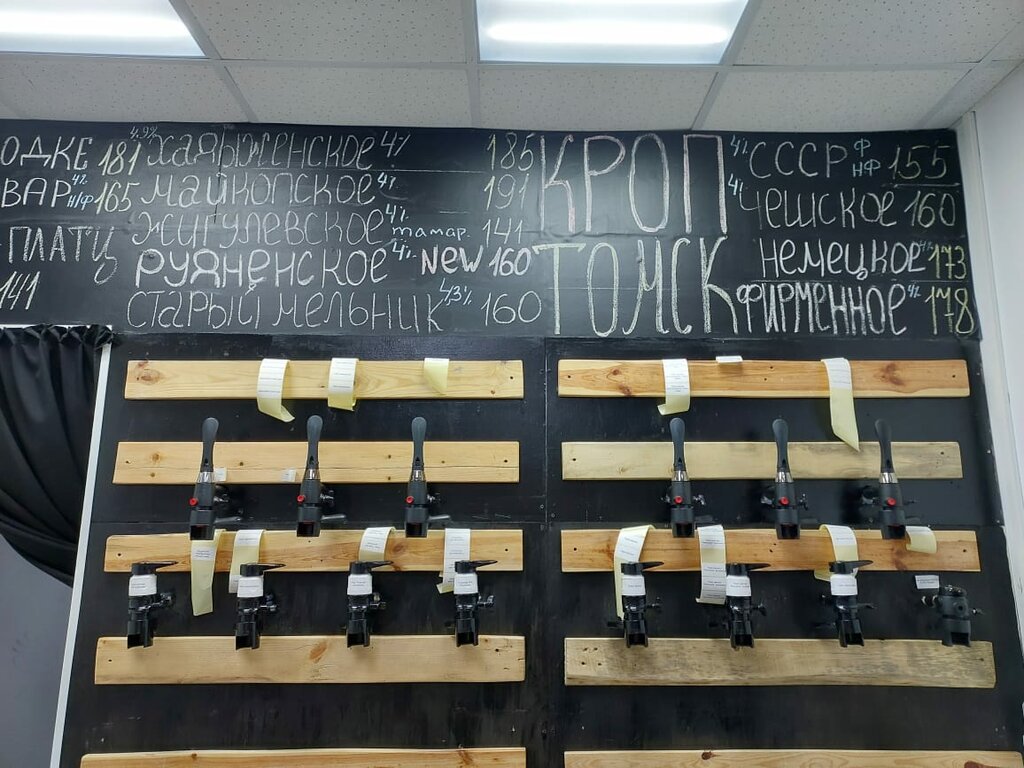 ОДКЕ 181
ВАР 4% Н/Ф 165
ПЛАТЦ
141
4,9% ХАДЫЖЕНСКОЕ 4% 185
МАЙКОПСКОЕ 4% 191
ЖИГУЛЕВСКОЕ 4% тамар. 141
РУЯНЕНСКОЕ 4% NEW 160
СТАРЫЙ МЕЛЬНИК 4,3% 160
КРОП
ТОМСК
4% СССР Ф НФ 155
4% ЧЕШСКОЕ 160
НЕМЕЦКОЕ 4% 173
ФИРМЕННОЕ 4% 178